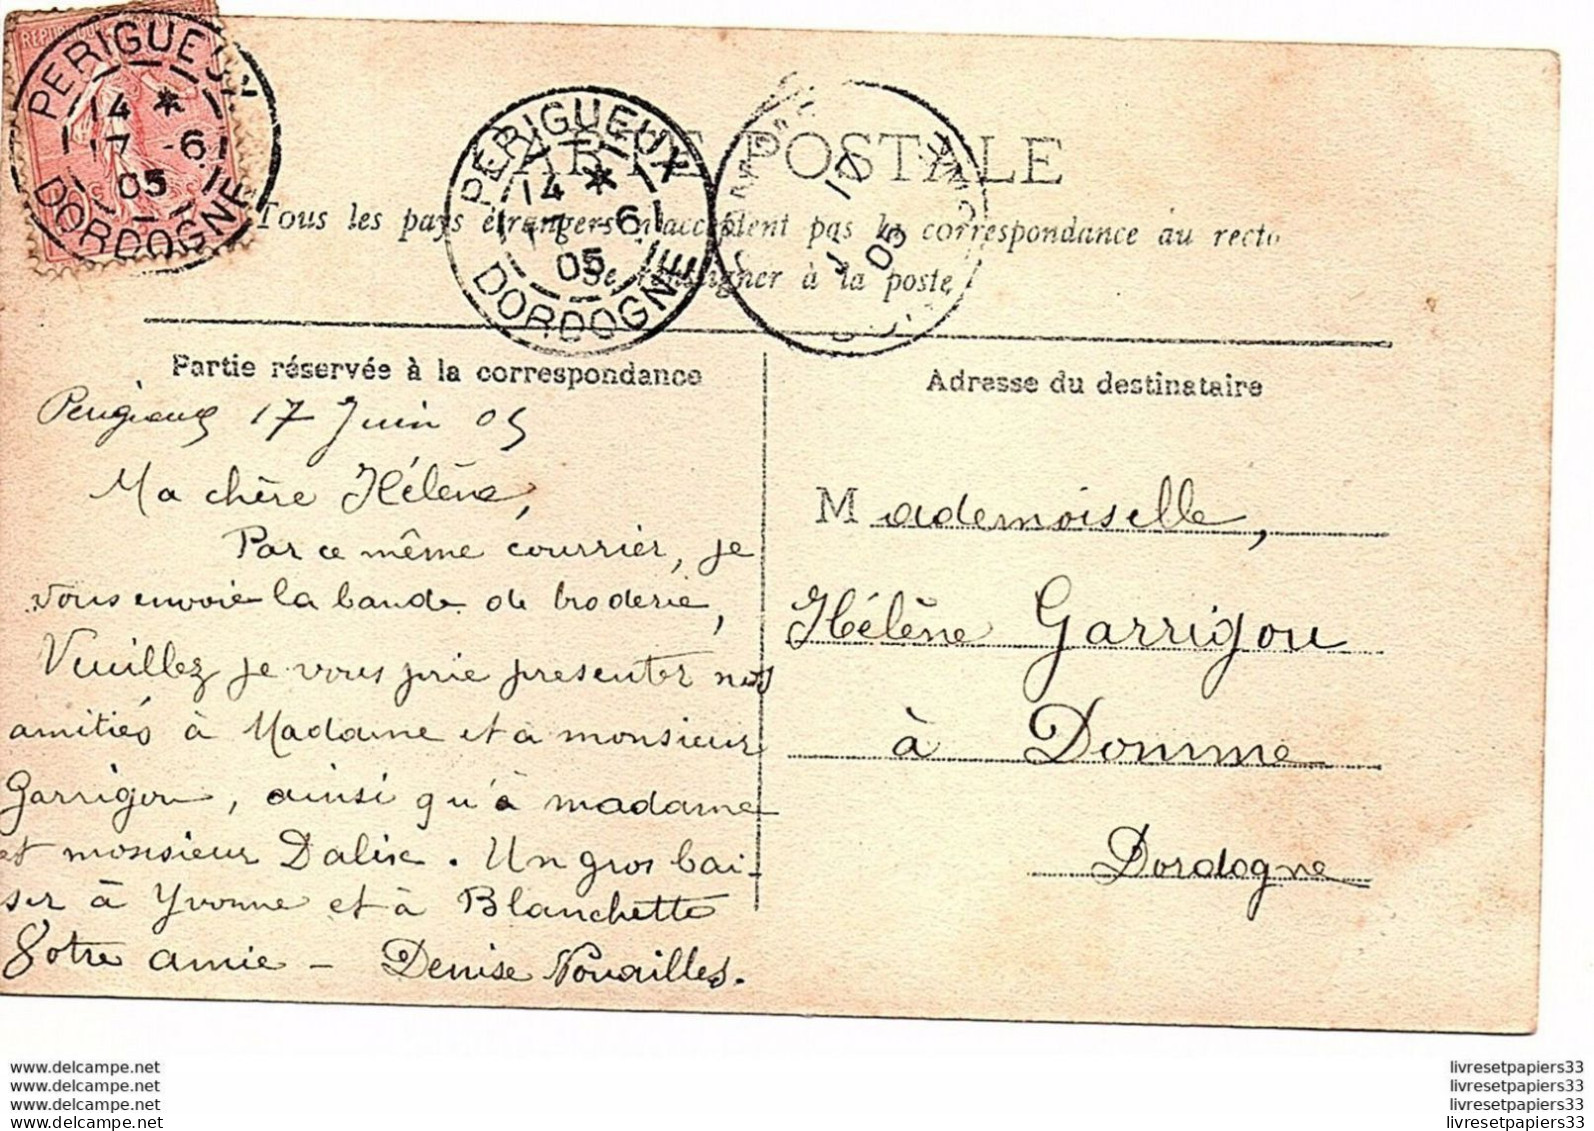 PÉRIGUEUX
14 *
17 -6
05
DORDOGNE
PÉRIGUEUX
14 *
17 -6
05
DORDOGNE
17
05
CARTE POSTALE
Tous les pays étrangers n'acceptent pas la correspondance au recto
Se renseigner à la poste
Partie réservée à la correspondance
Adresse du destinataire
Perigueux 17 Juin 05
Ma chère Hélène,
Par ce même courrier, je
vous envoie la bande de broderie,
Veuillez je vous prie presenter nos
amitiés à Madame et à monsieur
Garrigou, ainsi qu'à madame
et monsieur Dalix. Un gros bai-
ser à Yvonne et à Blanchette
Votre amie - Denise Nouailles.
Mademoiselle,
Hélène Garrigou
à Domme
Dordogne
www.delcampe.net
www.delcampe.net
www.delcampe.net
www.delcampe.net
livresetpapiers33
livresetpapiers33
livresetpapiers33
livresetpapiers33